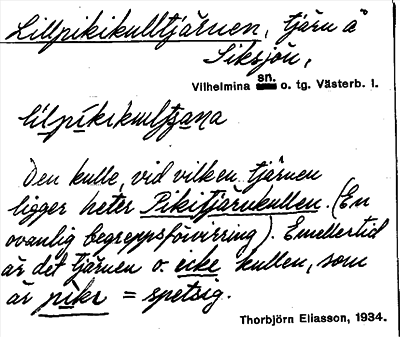 Lillpikikulltjärnen, tjärn å
Siksjön,
Vilhelmina sn. o. tg. Västerb. l.
Den kulle, vid vilken tjärnen
ligger heter Pikitjärnkullen. (En
ovanlig begreppsförvirring). Emellertid
är det tjärnen o. icke kullen, som
är = spetsig.
Thorbjörn Eliasson, 1934.